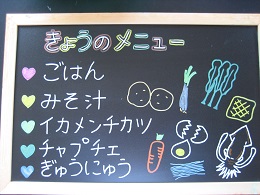 きょうのメニュー
ごはん
みそ汁
イカメンチカツ
チャプチェ
ぎゅうにゅう